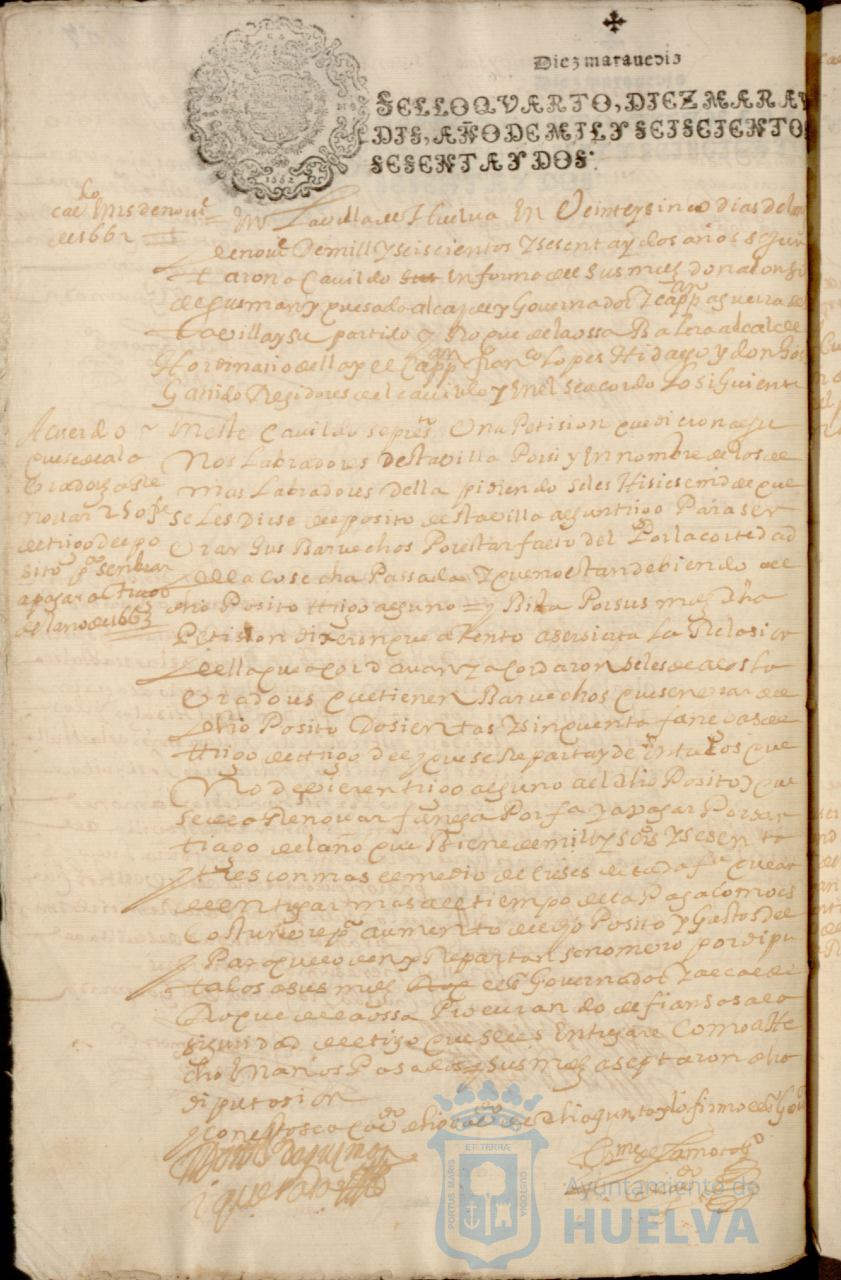 Diez marauedis
SELLO QVARTO, DIEZ MARAV
DIS, AÑO DE MIL Y SEISCIENTO
SESENTA Y DOS.
1662
de 1662
En La villa de Huelva En Veinte y sinco dias del
de nou.e De mill y seiscientos y sesenta y dos años se jun
taron a Cavildo En forma de sus mds don alonso
de gusman y quesada alcayde y Governador y cappan a guerra de
ta villa y su partido y Roque de la ossa Balera alcalde
Hordinario della y el Cappan franco Lopes Hidalgo y don
Garrido Regidores del cavildo y En el se acordo Lo siguiente
Acuerdo
que se de a la
bradores
250 fs
de trigo de po
sito pa senbrar
a pagar a Stiago
del año de 1663
En este Cavildo se presto Una Petision que dieron algu
nos Labradores desta villa Por si y En nombre de los de
mas Labradores della pidiendo se les Hisiese md de que
se Les Diese del posito desta villa algun trigo Para sen
brar sus Barvechos Por estar falto del Por la cortedad
de la cosecha Passada Y que no estan debiendo al
dho Posito trigo alguno = y Bista Por sus mds Dha
Petision dixeron que atento a ser sierta La Relasion
della que acordavan y acordaron se les de a los La
bradores que tienen Barvechos que senbrar del
dho Posito Dosientas y sinquenta fanegas de
trigo que se Reparta Entre Los que
No Debieren trigo alguno al dho Posito y que
se de a Renovar fanega Por fa y a pagar Por san
tiago del año que Biene de mill y seiss y sesenta
y tres con mas el medio de creses de cada fa que an
de entregar mas al tiempo de la Paga como es
Costunbre pa aumento del dho Posito y Gastos del
y Para que lo den y Repartan se nombro por dipu
tados a sus mds el sr Governador y alcalde
Roque de la ossa Procurando de fiansas a la
siguridad del trigo que se les Entregare Como a He
cho En años Pasados y sus mds aseptaron dha
diputasion
y con esto se acavo dho cavdo y lo firmo el sr Gov
Don Alo de gusman
i quesada
PORTUS MARIS
ET TERRÆ
CUSTODIA
Ayuntamiento de
HUELVA